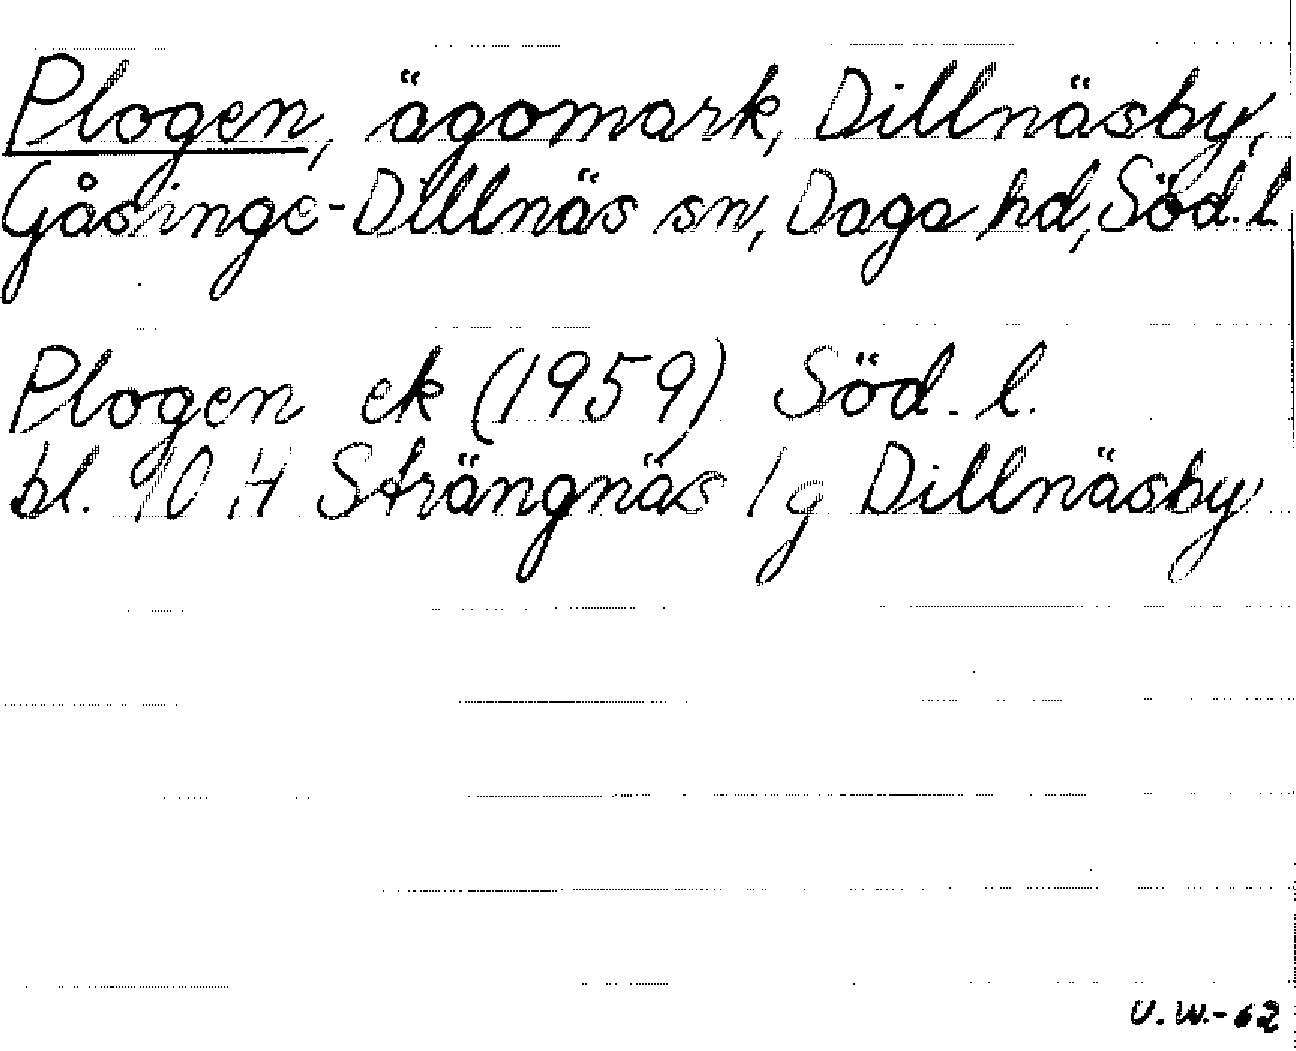 Plogen, ägomark, Dillnäsby,
Gåsinge-Dillnäs sn, Daga hd, Söd. l.
Plogen ek (1959) Söd. l.
bl. 10 H Strängnäs 1 g Dillnäsby
U.W.-62